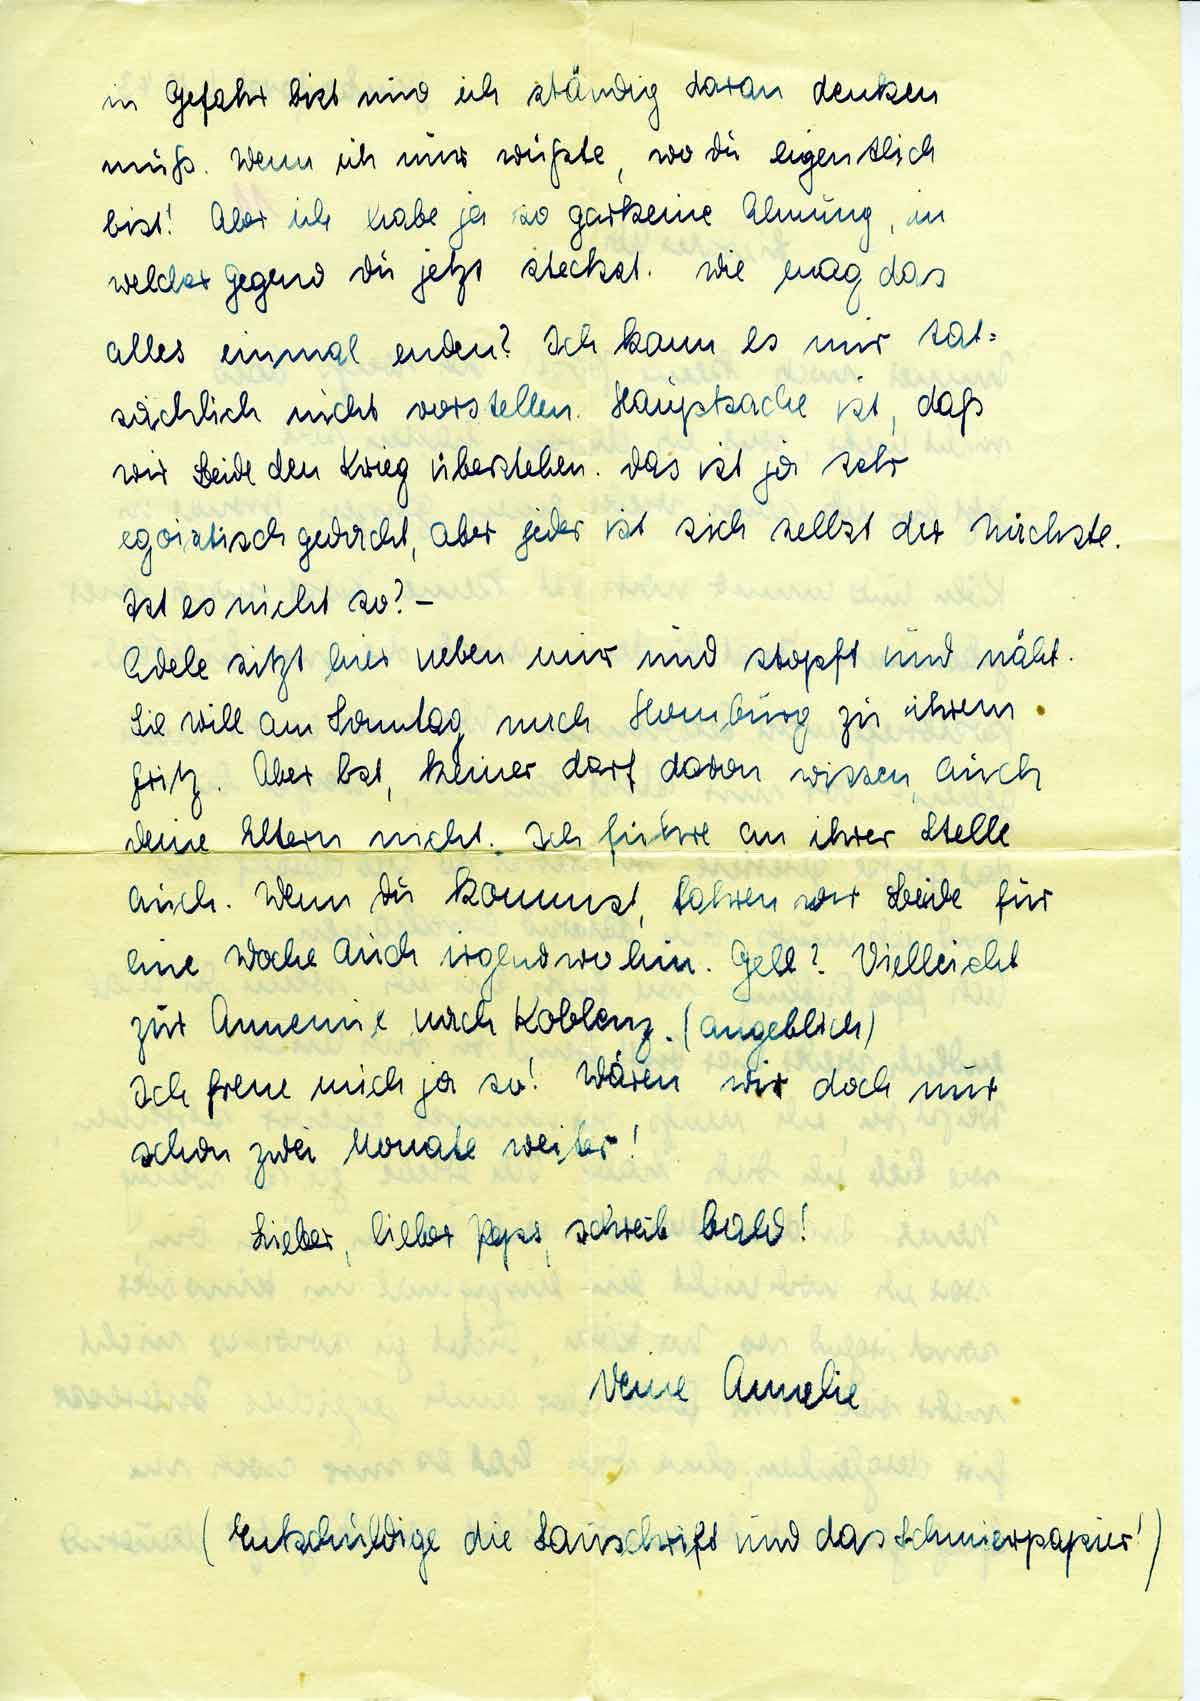 in Gefahr bist und ich ständig daran denken
muß. Wenn ich nur wüßte, wo du eigentlich
bist! Aber ich habe ja so garkeine Ahnung, in
welcher Gegend du jetzt steckst. Wie mag das
alles einmal enden? Ich kann es mir tat=
sächlich nicht vorstellen. Hauptsache ist, daß
wir beide den Krieg überstehen. Das ist ja sehr
egoistisch gedacht, aber jeder ist sich selbst der Nächste.
Ist es nicht so? –
Adele sitzt hier neben mir und stopft und näht.
Sie will am Sonntag nach Homburg zu ihrem
Fritz. Aber bst, keiner darf davon wissen, auch
deine Eltern nicht. Ich führe an ihrer Stelle
auch. Wenn du kommst, fahren wir beide für
eine Woche auch irgendwohin. Gell? Vielleicht
zur Annemie nach Koblenz. (angeblich)
Ich freue mich ja so! Wären wir doch nur
schon zwei Monate weiter!
Lieber, lieber Peps, schreib bald!
Deine Annelie
(Entschuldige die Sauschrift und das Schmierpapier!)